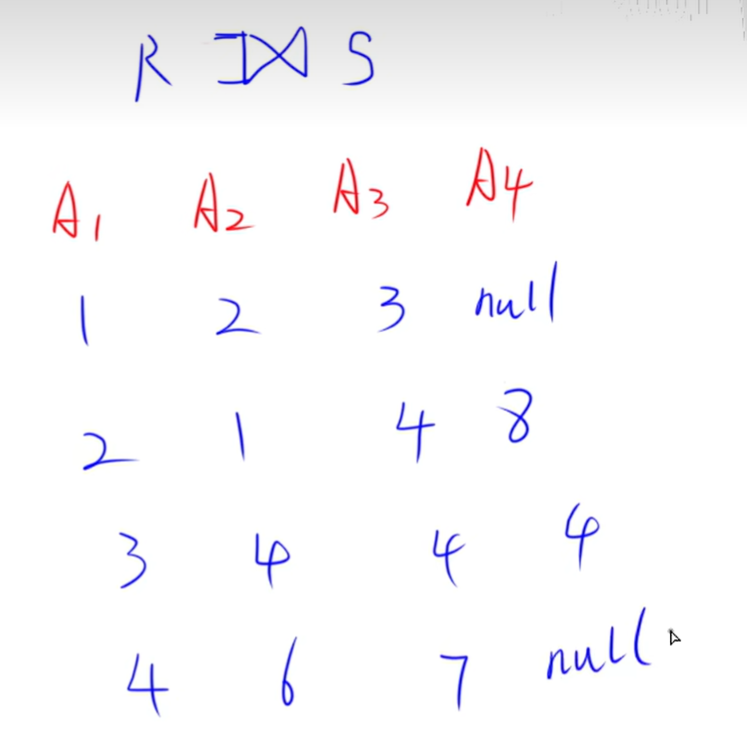 R ⟕ S
A1 A2 A3 A4
1 2 3 null
2 1 4 8
3 4 4 4
4 6 7 null